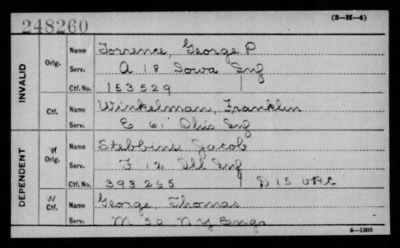 248260
(3-H-4)
INVALID
Orig.
Name Torrence, George P
Serv. A 18 Iowa Inf
Ctf. No. 153529
Ctf.
Name Winkelman, Franklin
Serv. E 61 Ohio Inf
DEPENDENT
Orig.
Name Stebbins Jacob
Serv. F 12 Ill Inf
Ctf. No. 393265 D 15 VRC
Ctf.
Name George, Thomas
Serv. M 50 N Y Engs
6—1301